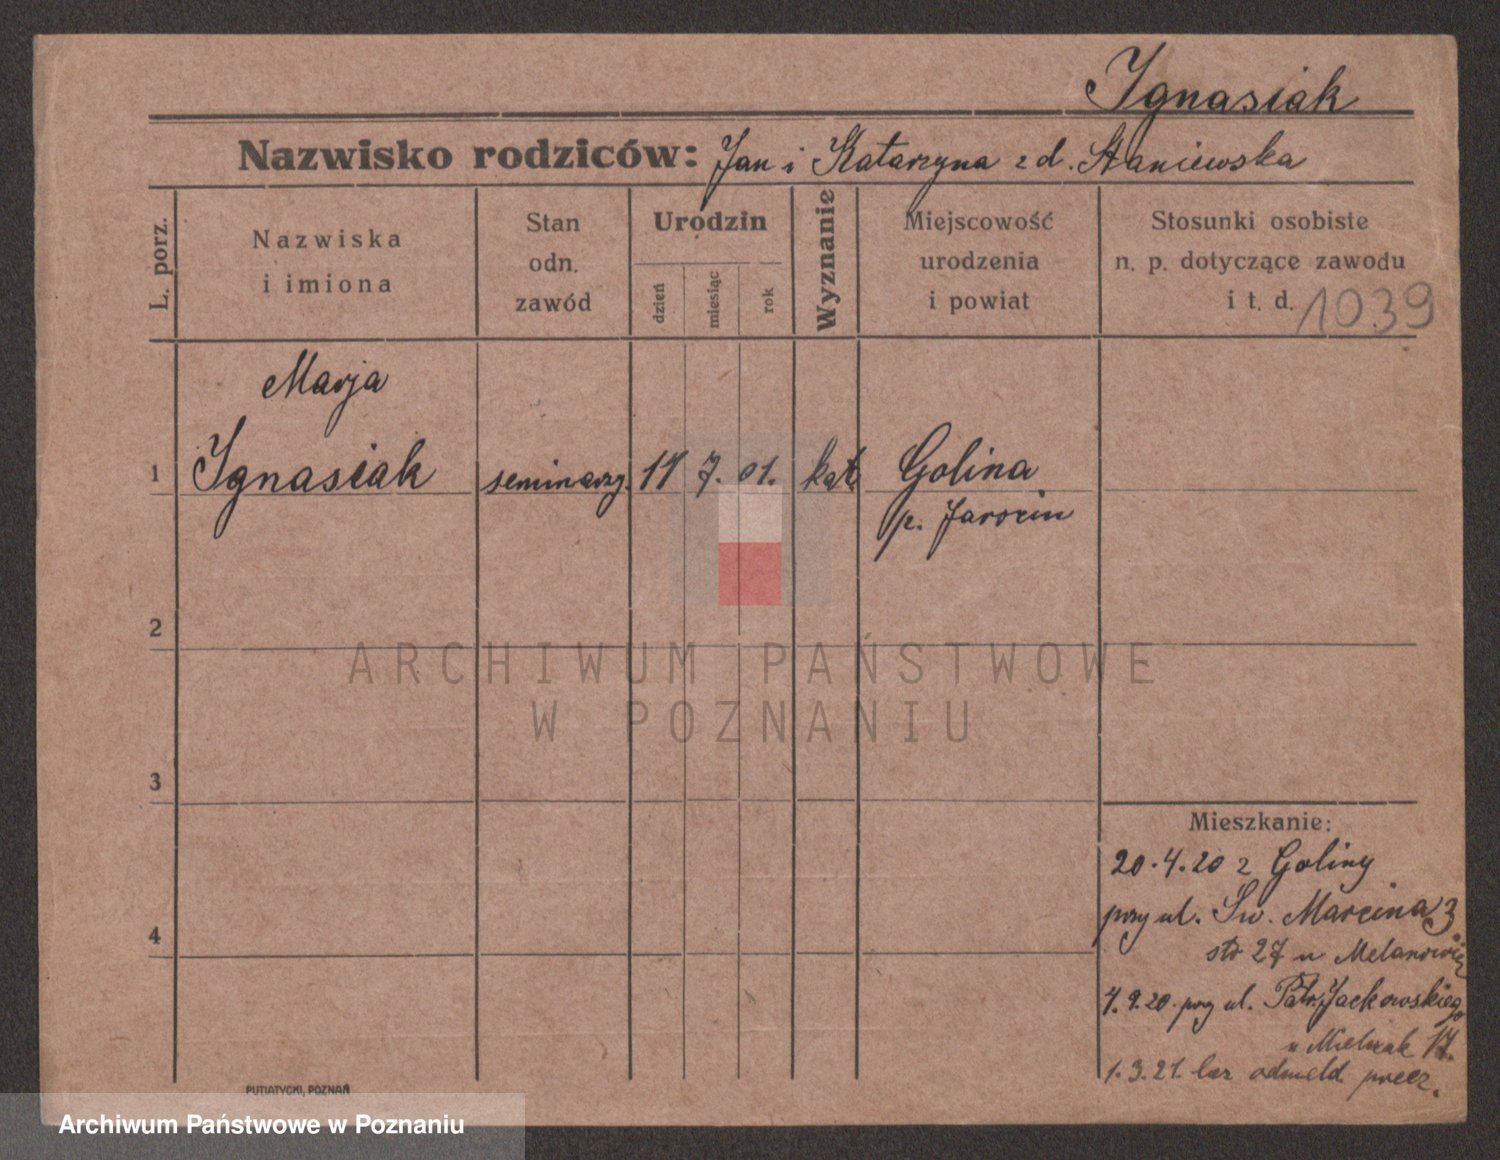 Ignasiak
Nazwisko rodziców: Jan i Katarzyna z d. Staniewska
L. porz.
Nazwiska
i imiona
Stan
odn.
zawód
Urodzin
dzień
miesiąc
rok
Wyznanie
Miejscowość
urodzenia
i powiat
Stosunki osobiste
n. p. dotyczące zawodu
i t. d. 1039
Marja
1 Ignasiak seminarzy. 7. 01. kat Golina
p. Jarocin
2
3
4
Mieszkanie:
20.4.20 z Goliny
przy ul. Św. Marcina 3
27 u
9.20. przy ul. Patr. Jackowskiego
u 17.
1.3.21. bez odmeld. precz.
PUTIATYCKI, POZNAŃ
ARCHIWUM PAŃSTWOWE
W POZNANIU
Archiwum Państwowe w Poznaniu